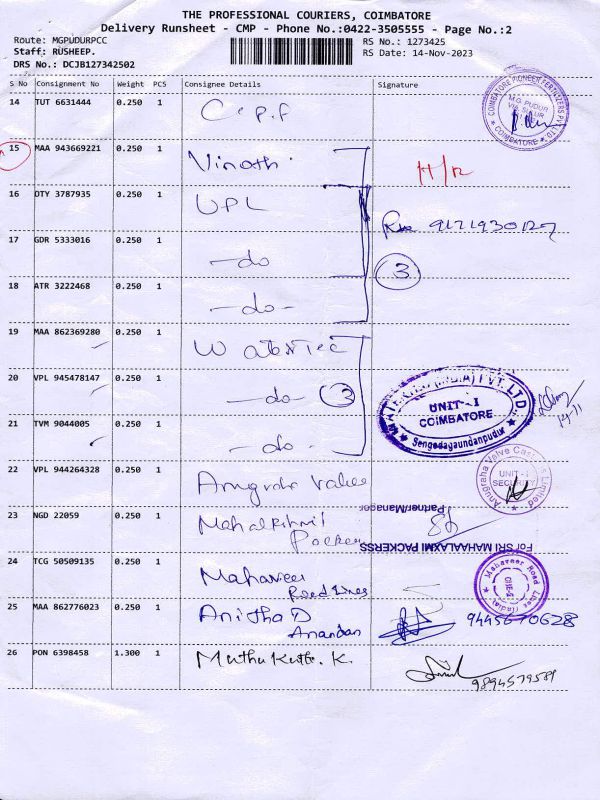 THE PROFESSIONAL COURIERS, COIMBATORE
Delivery Runsheet - CMP - Phone No.:0422-3505555 - Page No.:2
Route: MGPUDURPCC
RS No.: 1273425
Staff: RUSHEEP.
RS Date: 14-Nov-2023
DRS No.: DCJB127342502
S No Consignment No Weight PCS Consignee Details Signature
14 TUT 6631444 0.250 1 C.P.F
COIMBATORE PIONEER FERTILIZERS PVT LTD
M.G. PUDUR
VIA. SULUR
COIMBATORE
15 MAA 943669221 0.250 1 Vinoth H/R
16 DTY 3787935 0.250 1 UPL
17 GDR 5333016 0.250 1 -do
3
18 ATR 3222468 0.250 1 -do-
19 MAA 862369280 0.250 1 WaterTec
20 VPL 945478147 0.250 1 -do- 3
(INDIA) PVT. LTD
UNIT-I
COIMBATORE
Sengodagaundanpudur
21 TVM 9044005 0.250 1 -do-
22 VPL 944264328 0.250 1 Anugraha Valve
Anugraha Valve Castings Limited
UNIT-I
SECURITY
23 NGD 22059 0.250 1 Mahalkshmi
Packers
Partner/Manager
For SRI MAHAALAXMI PACKERSS
24 TCG 50509135 0.250 1 Mahaveer
Road Lines
Mahaveer Road Lines (India)
CBE-4
25 MAA 862776023 0.250 1 Anitha D
Anandan
9445670628
26 PON 6398458 1.300 1 Muthu Kutti. K.
9894579589